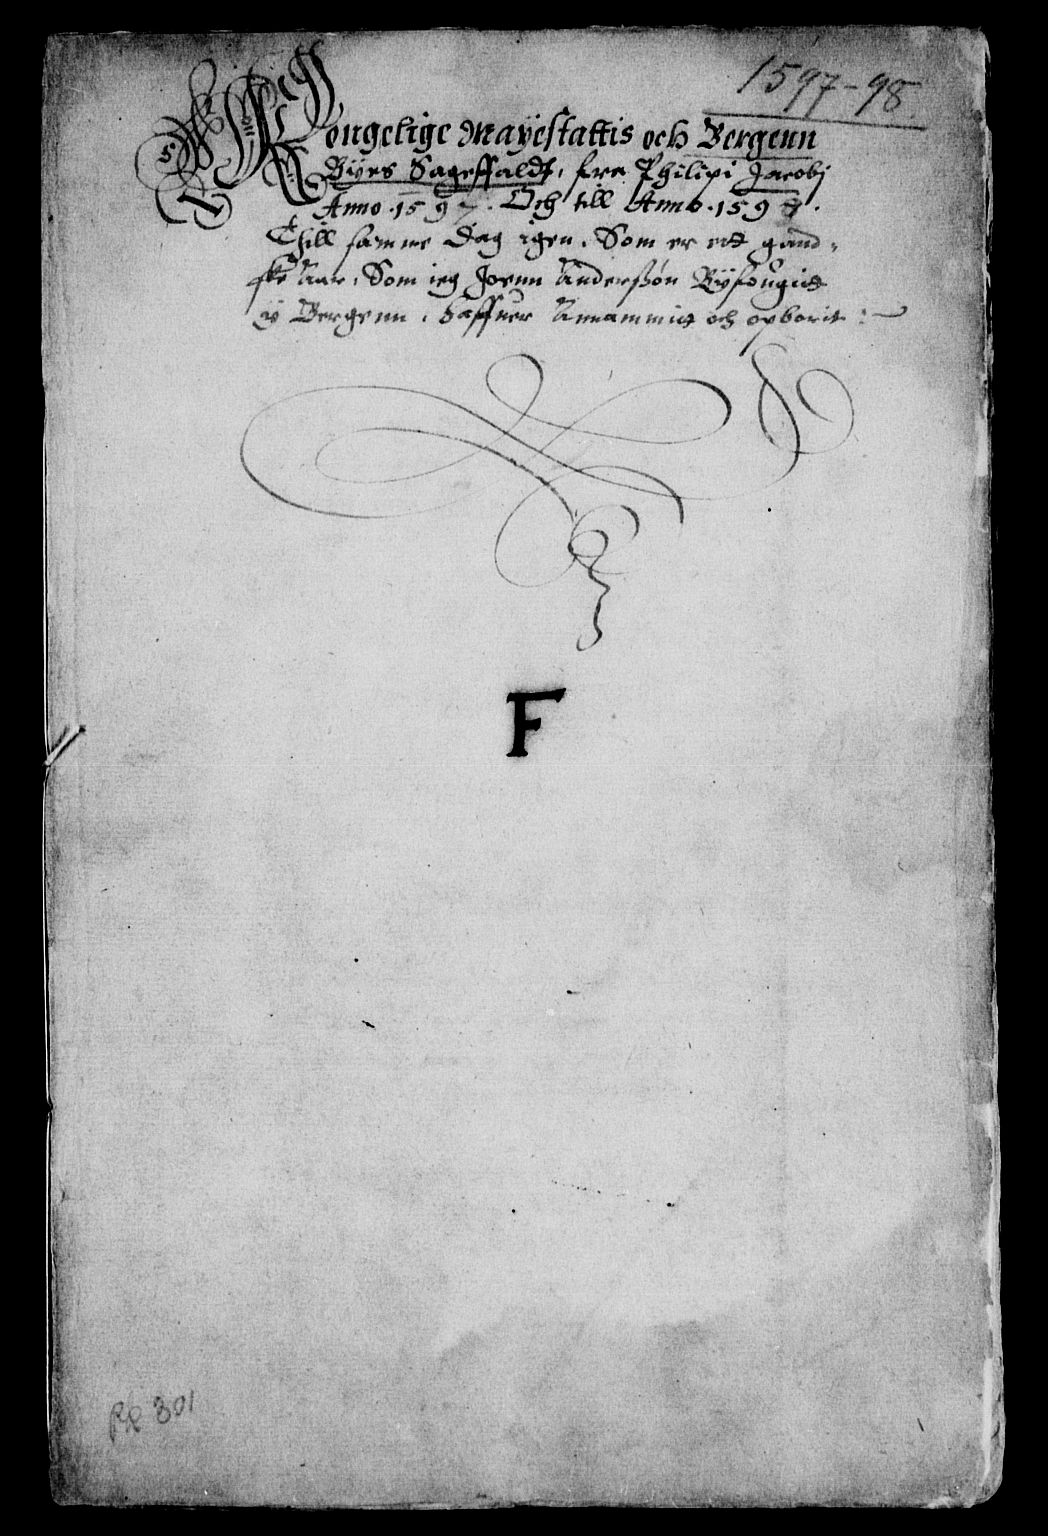 1597-98.
Kongelige Mayestattis och Bergenn
Byes Sageffaldt, fra Philipi Jacobj
Anno .1597. Och till Anno .159 .
Thill samme Dag igen, Som er ett gand-
ske Aar, Som ieg Jørenn Anderßøn Byfougitt
y Bergenn, haffuer Annammitt och opborit :
F
Rk 301